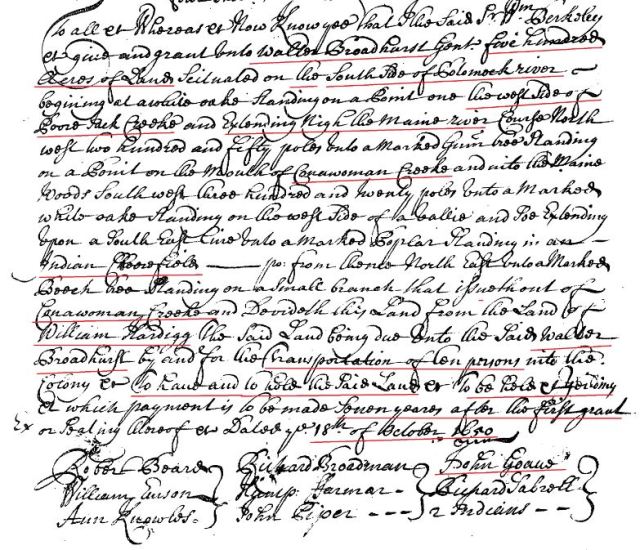 To all &c Whereas &c Now Know yee that I the Said Sr. Wm. Berkeley
&c give and grant unto Walter Broadhurst Gent. five hundred
Acres of Land Scituated on the South Side of Potomeck river
begining at a white oake standing on a Point one the west Side of
Poore Jack Creeke and Extending Nigh the Maine river Course North
west two hundred and fifty poles unto a Marked Gum tree standing
on a Point on the Mouth of Canawoman Creeke and into the Maine
Woods South west three hundred and twenty poles unto a Marked
white oake standing on the west Side of a vallie and soe Extending
upon a South East Line unto a Marked Poplar standing in an
Indian Cornefield po: from thence North East unto a Marked
Beech tree standing on a Small branch that issueth out of
Canawoman Creeke and Devideth this Land from the Land of
William Hardigg the Said Land being due unto the Said Walter
Broadhurst by and for the transportation of ten persons into the
Colony &c To have and to hold the Said Land &c To be held &c yeilding
&c which payment is to be made Seven yeares after the first grant
or Seating thereof &c Dated ye 18th of October 1650
Robert Beard Richard Broadman John Goave
William Richard
Ann Knowles John Piper 2 Indians